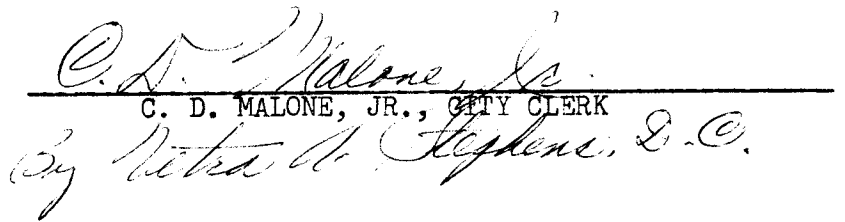 C. D. Malone, Jr.
C. D. MALONE, JR., CITY CLERK
By Netra A. Stephens, D.C.